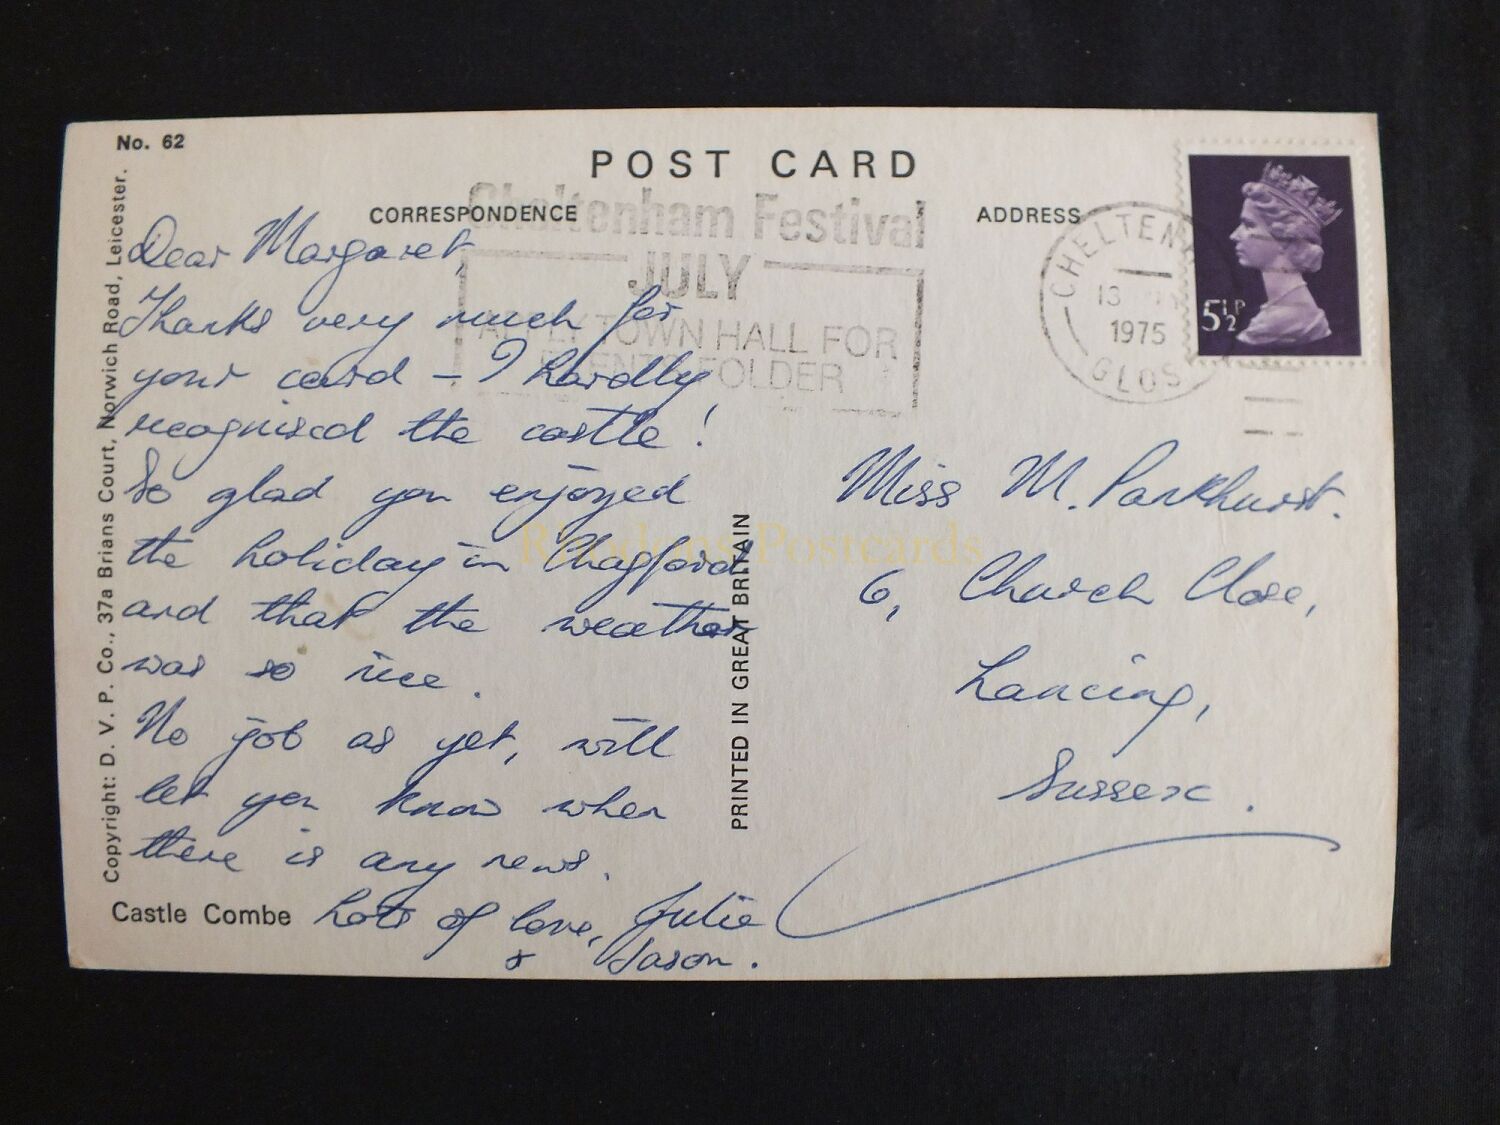 No. 62
POST CARD
CORRESPONDENCE
ADDRESS
Cheltenham Festival
JULY
APPLY TOWN HALL FOR
EVENTS FOLDER
CHELTENHAM
13
1975
GLOS
5½P
Dear Margaret,
Thanks very much for
your card – I hardly
recognised the castle!
So glad you enjoyed
the holiday in Chagford
and that the weather
was so nice.
No job as yet, will
let you know when
there is any news.
Lots of love, Julie
& Jason.
Miss M. Parkhurst.
6, Church Close,
Lancing,
Sussex.
Castle Combe
Copyright: D. V. P. Co., 37a Brians Court, Norwich Road, Leicester.
PRINTED IN GREAT BRITAIN
Postcards